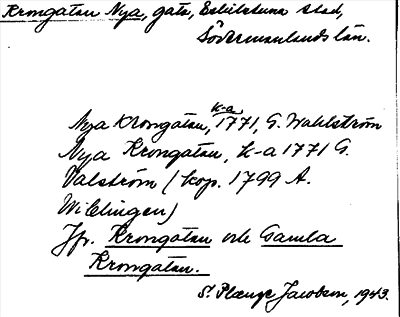 Krongatan Nya, gata, Eskilstuna stad,
Södermanlands län.
Nya Krongatan, k-a 1771, G. Wahlström
Nya Krongatan, k-a 1771 G.
Valström (kop. 1799 A.
Wiblingen)
Jfr. Krongatan och Gamla
Krongatan.
S. Plænge Jacobson, 1943.